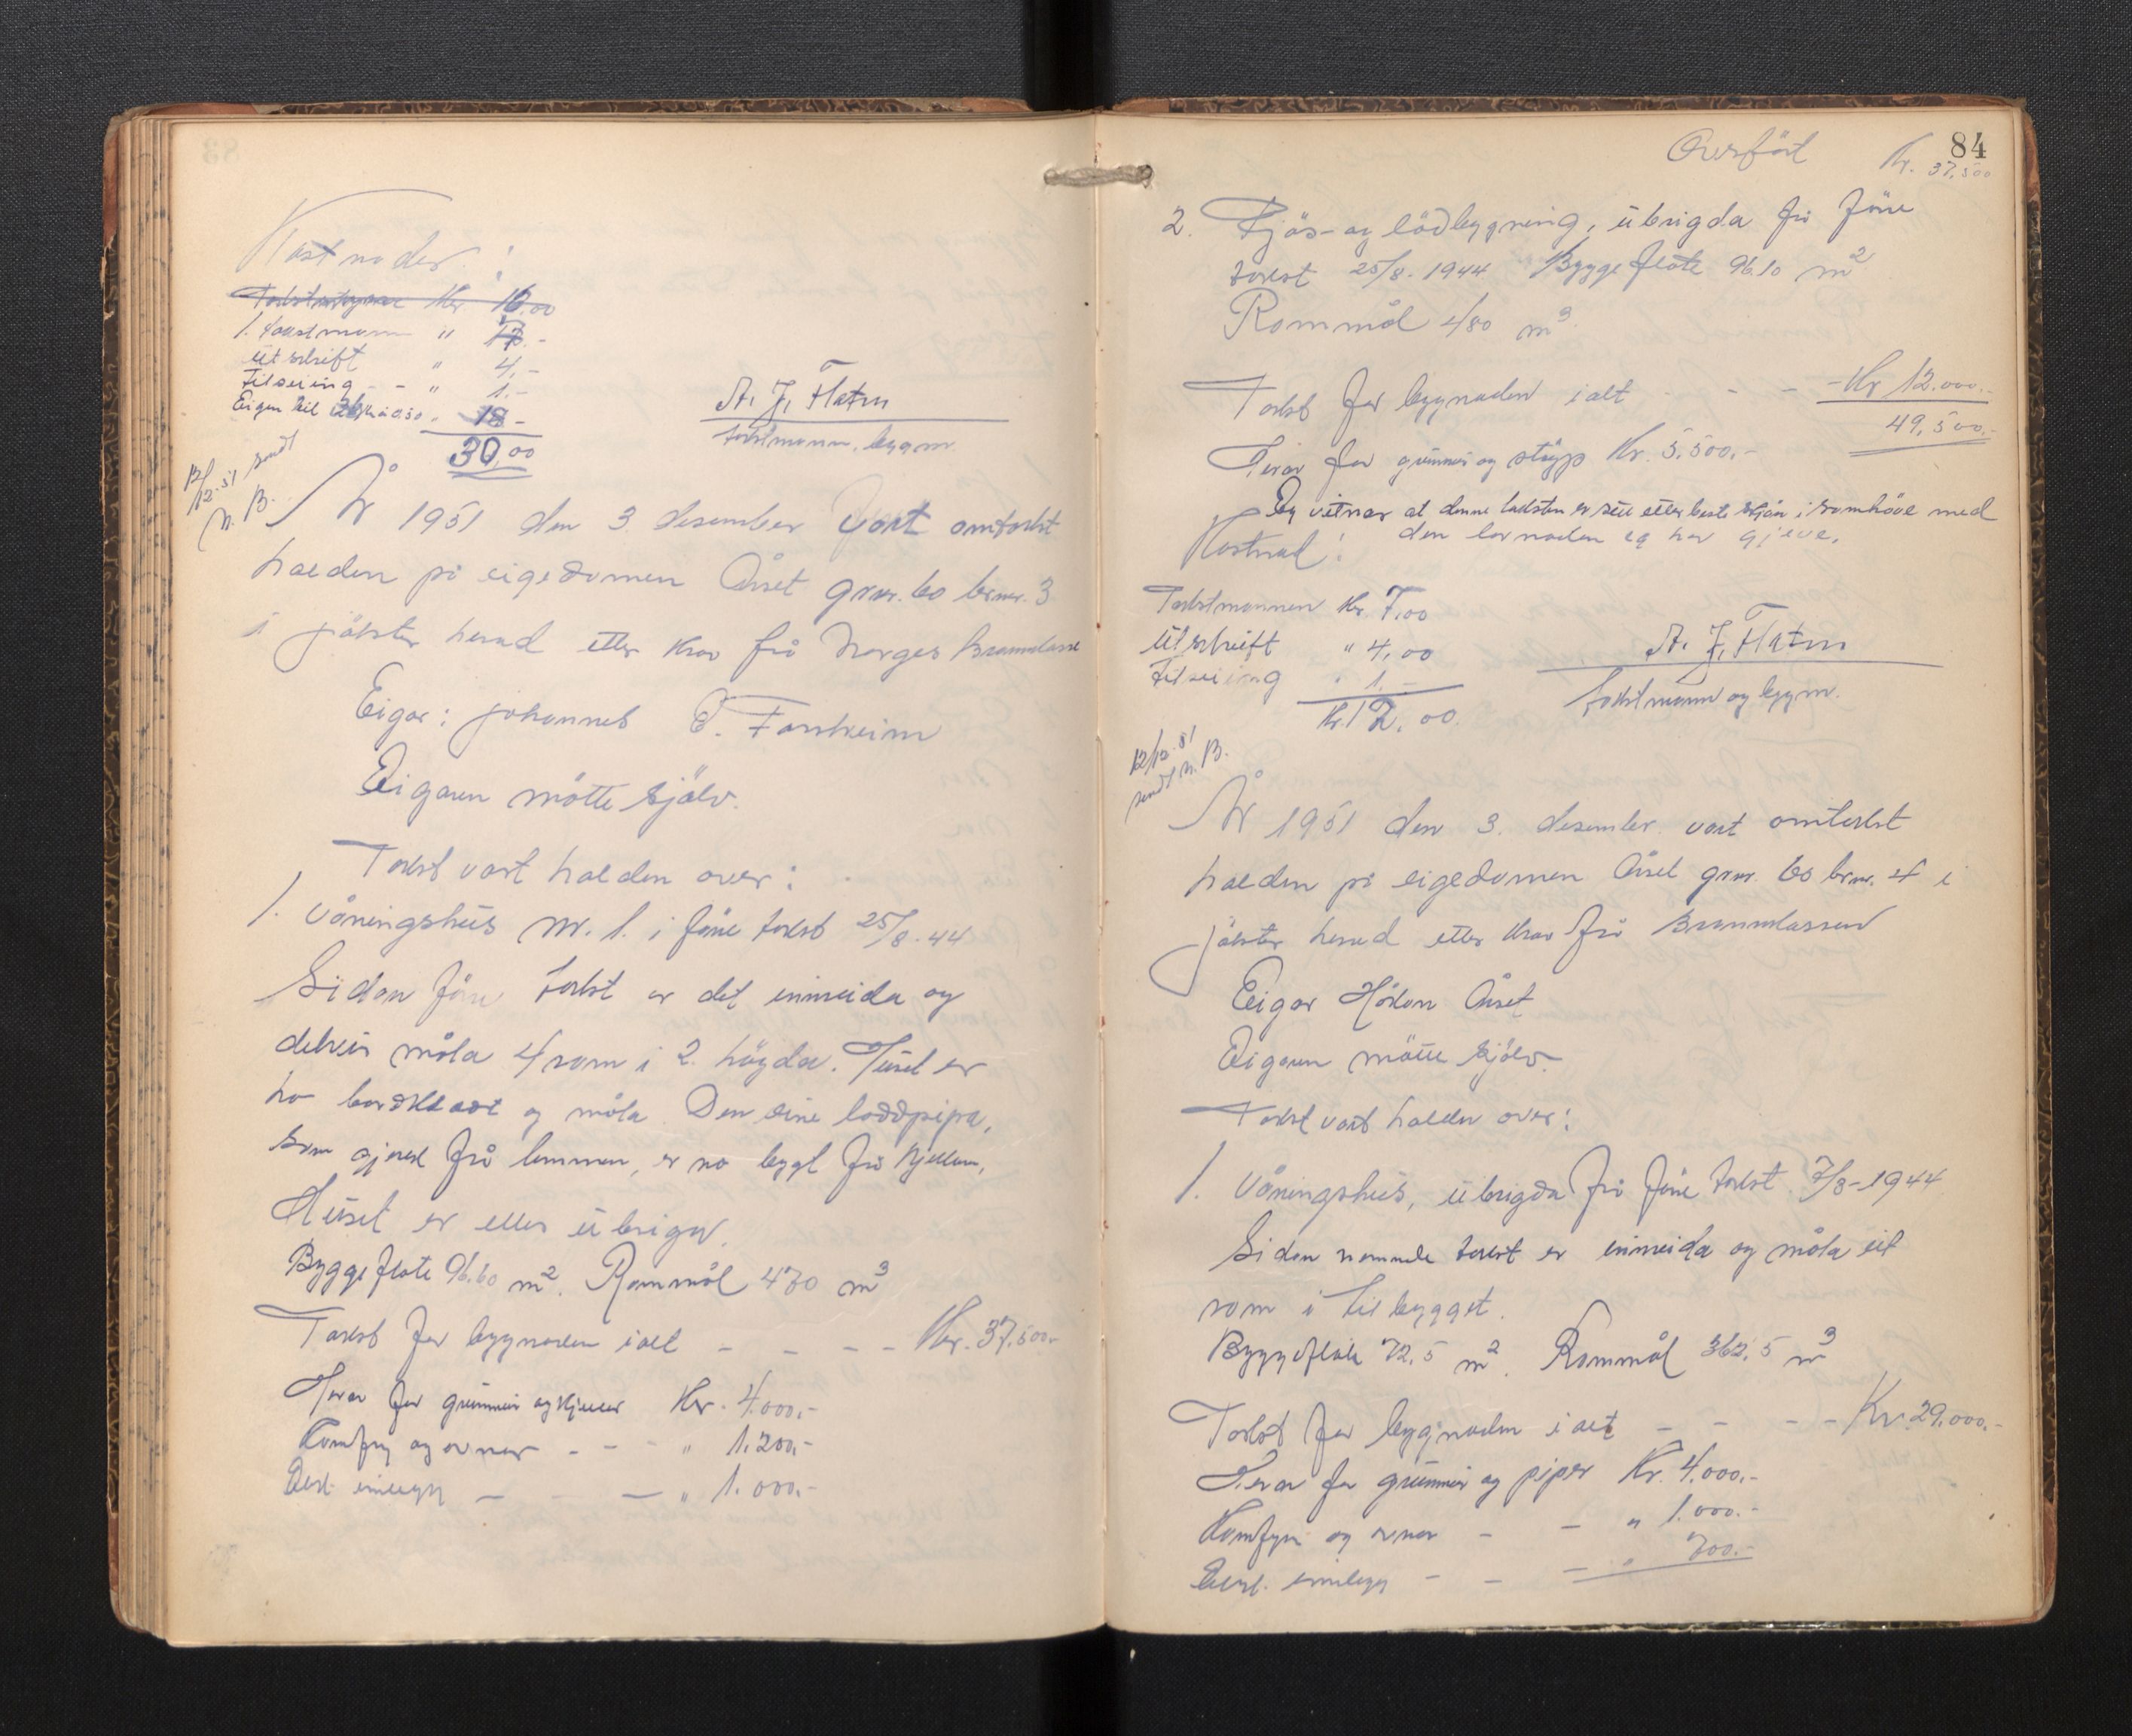 Kostnader:
Takstmennene Kr 16.00
1. takstmann " 17.-
Utskrift " 4,-
Tilseiing - - " 1.-
Eigen bil - 18 -
30,00
A. J. Flaten
takstmann, byggm
12/12-51 sendt
N. B.
År 1951 den 3. desember vart omtakst
halden på eigedomen Åset gnr. 60 bnr. 3
i Jölster herad etter krav frå Norges Brannkasse
Eigar: Johannes E. Farsheim
Eigaren mötte sjölv.
Takst vart halden over:
1. Våningshus nr. 1. i före takst 25/8-44
Sidan före takst er det innreida og
delvis måla 4 rom i 2. högda. Huset er
no bordkledt og måla. Den eine loddpipa,
som gjekk frå lemmen, er no bygt frå kjellaren,
Huset er elles ubrigda.
Byggeflate 96.60 m². Rommål 470 m³
Takst for bygnaden i alt - - - - Kr. 37,500.-
Herav for grunnmur og kjeller Kr. 4.000.-
Komfyr og omnar - - - " 1.200.-
Elekt. innlegg - - - " 1.000.-
84
Overfört Kr. 37,500
2. Fjös- og lödbygning, ubrigda frå före
takst 25/8. 1944 Byggeflate 96.10 m²
Rommål 480 m³.
Takst for bygnaden i alt - - - Kr 12.000.-
49,500.-
Herav for grunnmur og stöyp Kr. 5.500.-
Eg vitnar at denne taksten er sett etter beste skjön i samhöve med
den lovnaden eg har gjeve.
Kostnad:
Takstmannen Kr. 7,00
Utskrift " 4,00
Tilseiing " 1.-
Kr. 12,00.
A. J. Flaten
takstmann og byggm.
12/12-51
sendt N. B.
År 1951 den 3. desember vart omtakst
halden på eigedomen Åset gnr. 60 bnr. 4 i
Jölster herad etter krav frå Brannkassen
Eigar Håkon Åset
Eigaren mötte sjölv.
Takst vart halden over:
1. Våningshus, ubrigda frå före takst 7/8-1944
Sidan nemnde takst er innreida og måla eit
rom i tilbygget.
Byggeflate 72,5 m². Rommål 362,5 m³
Takst for bygnaden i alt - - - - Kr. 29.000.-
Herav for grunnmur og piper Kr. 4.000.-
Komfyr og omnar - - " 1.000.-
Elekt. innlegg - - - " 700.-